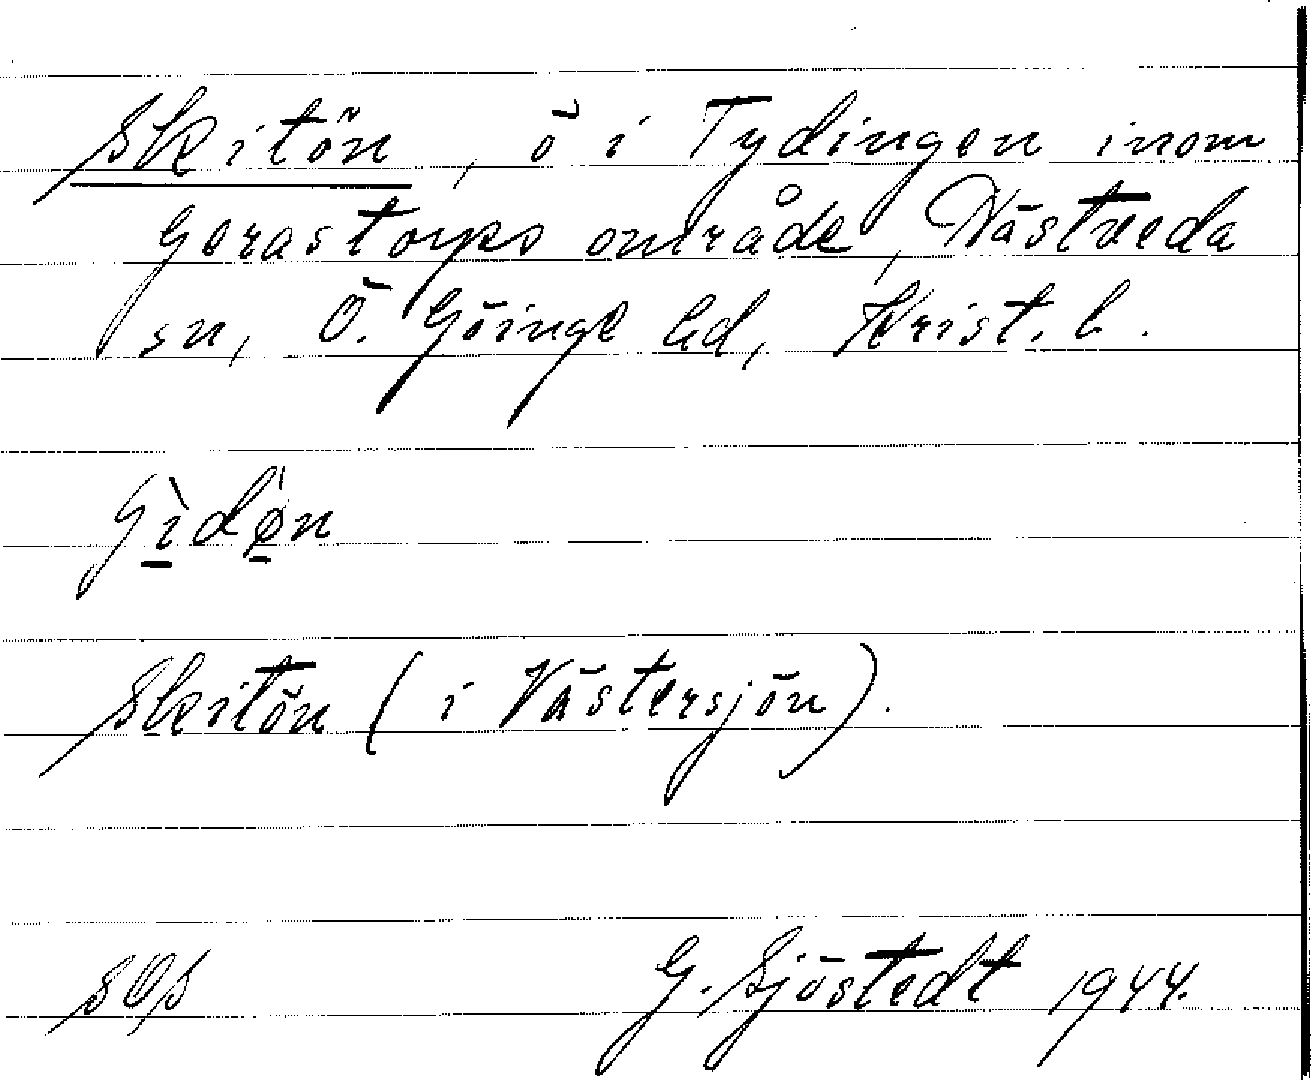 Skitön, ö i Tydingen inom
Gerastorps område, Nästveda
sn, Ö. Göinge hd, Krist. l.
Gìdø̀n
Skitön (i Västersjön).
SOS
G. Sjöstedt 1944.